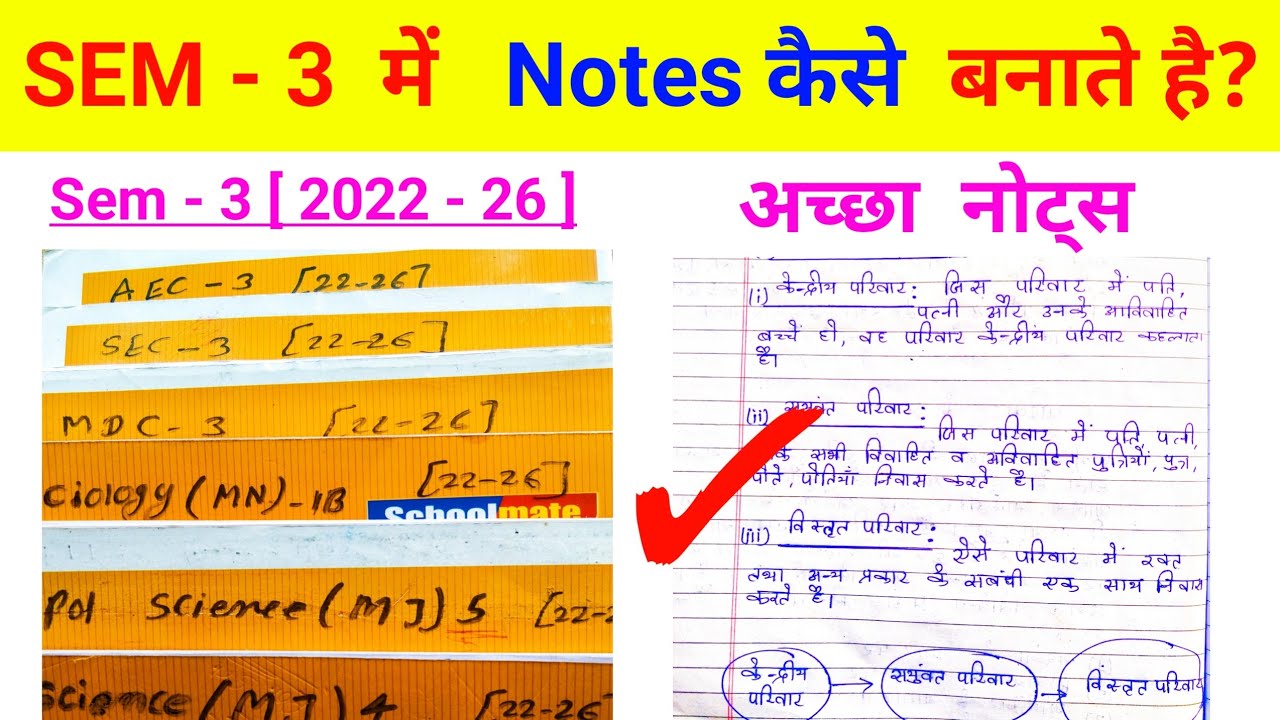 SEM - 3 में Notes कैसे बनाते है?
Sem - 3 [ 2022 - 26 ]
अच्छा नोट्स
AEC - 3 [22-26]
SEC - 3 [22-26]
MDC - 3 [22-26]
ciology (MN) - IB [22-26]
Schoolmate
Pol Science (MJ) 5 [22-2
Science (MJ) 4 [22-26]
(i) केन्द्रीय परिवार : जिस परिवार में पति,
पत्नी और उनके अविवाहित
बच्चें हो, वह परिवार केन्द्रीय परिवार कहलाता
है।
(ii) सयुंक्त परिवार :
जिस परिवार में पति, पत्नी,
के सभी विवाहित व अविवाहित पुत्रियाँ, पुत्र,
पोते, पोतियाँ निवास करते है।
(iii) विस्तृत परिवार :
ऐसे परिवार में रक्त
तथा अन्य प्रकार के सबंधी एक साथ निवास
करते है।
केन्द्रीय
परिवार
सयुंक्त परिवार
विस्तृत परिवार